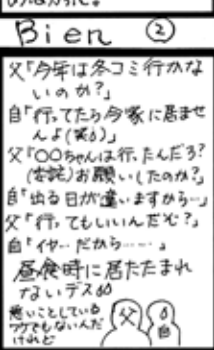 Bien ②
父「今年は冬コミ行かな
いのか?」
自「行ってたら今家に居ませ
んよ(笑)」
父「○○ちゃんは行ったんだろ?
(委託)お願いしたのか?」
自「出る日が違いますから…」
父「行ってもいいんだぞ?」
自「イヤ…だから……」
昼食時に居たたまれ
ないデス
悪いことしている
ワケでもないんだ
けれど
父
自